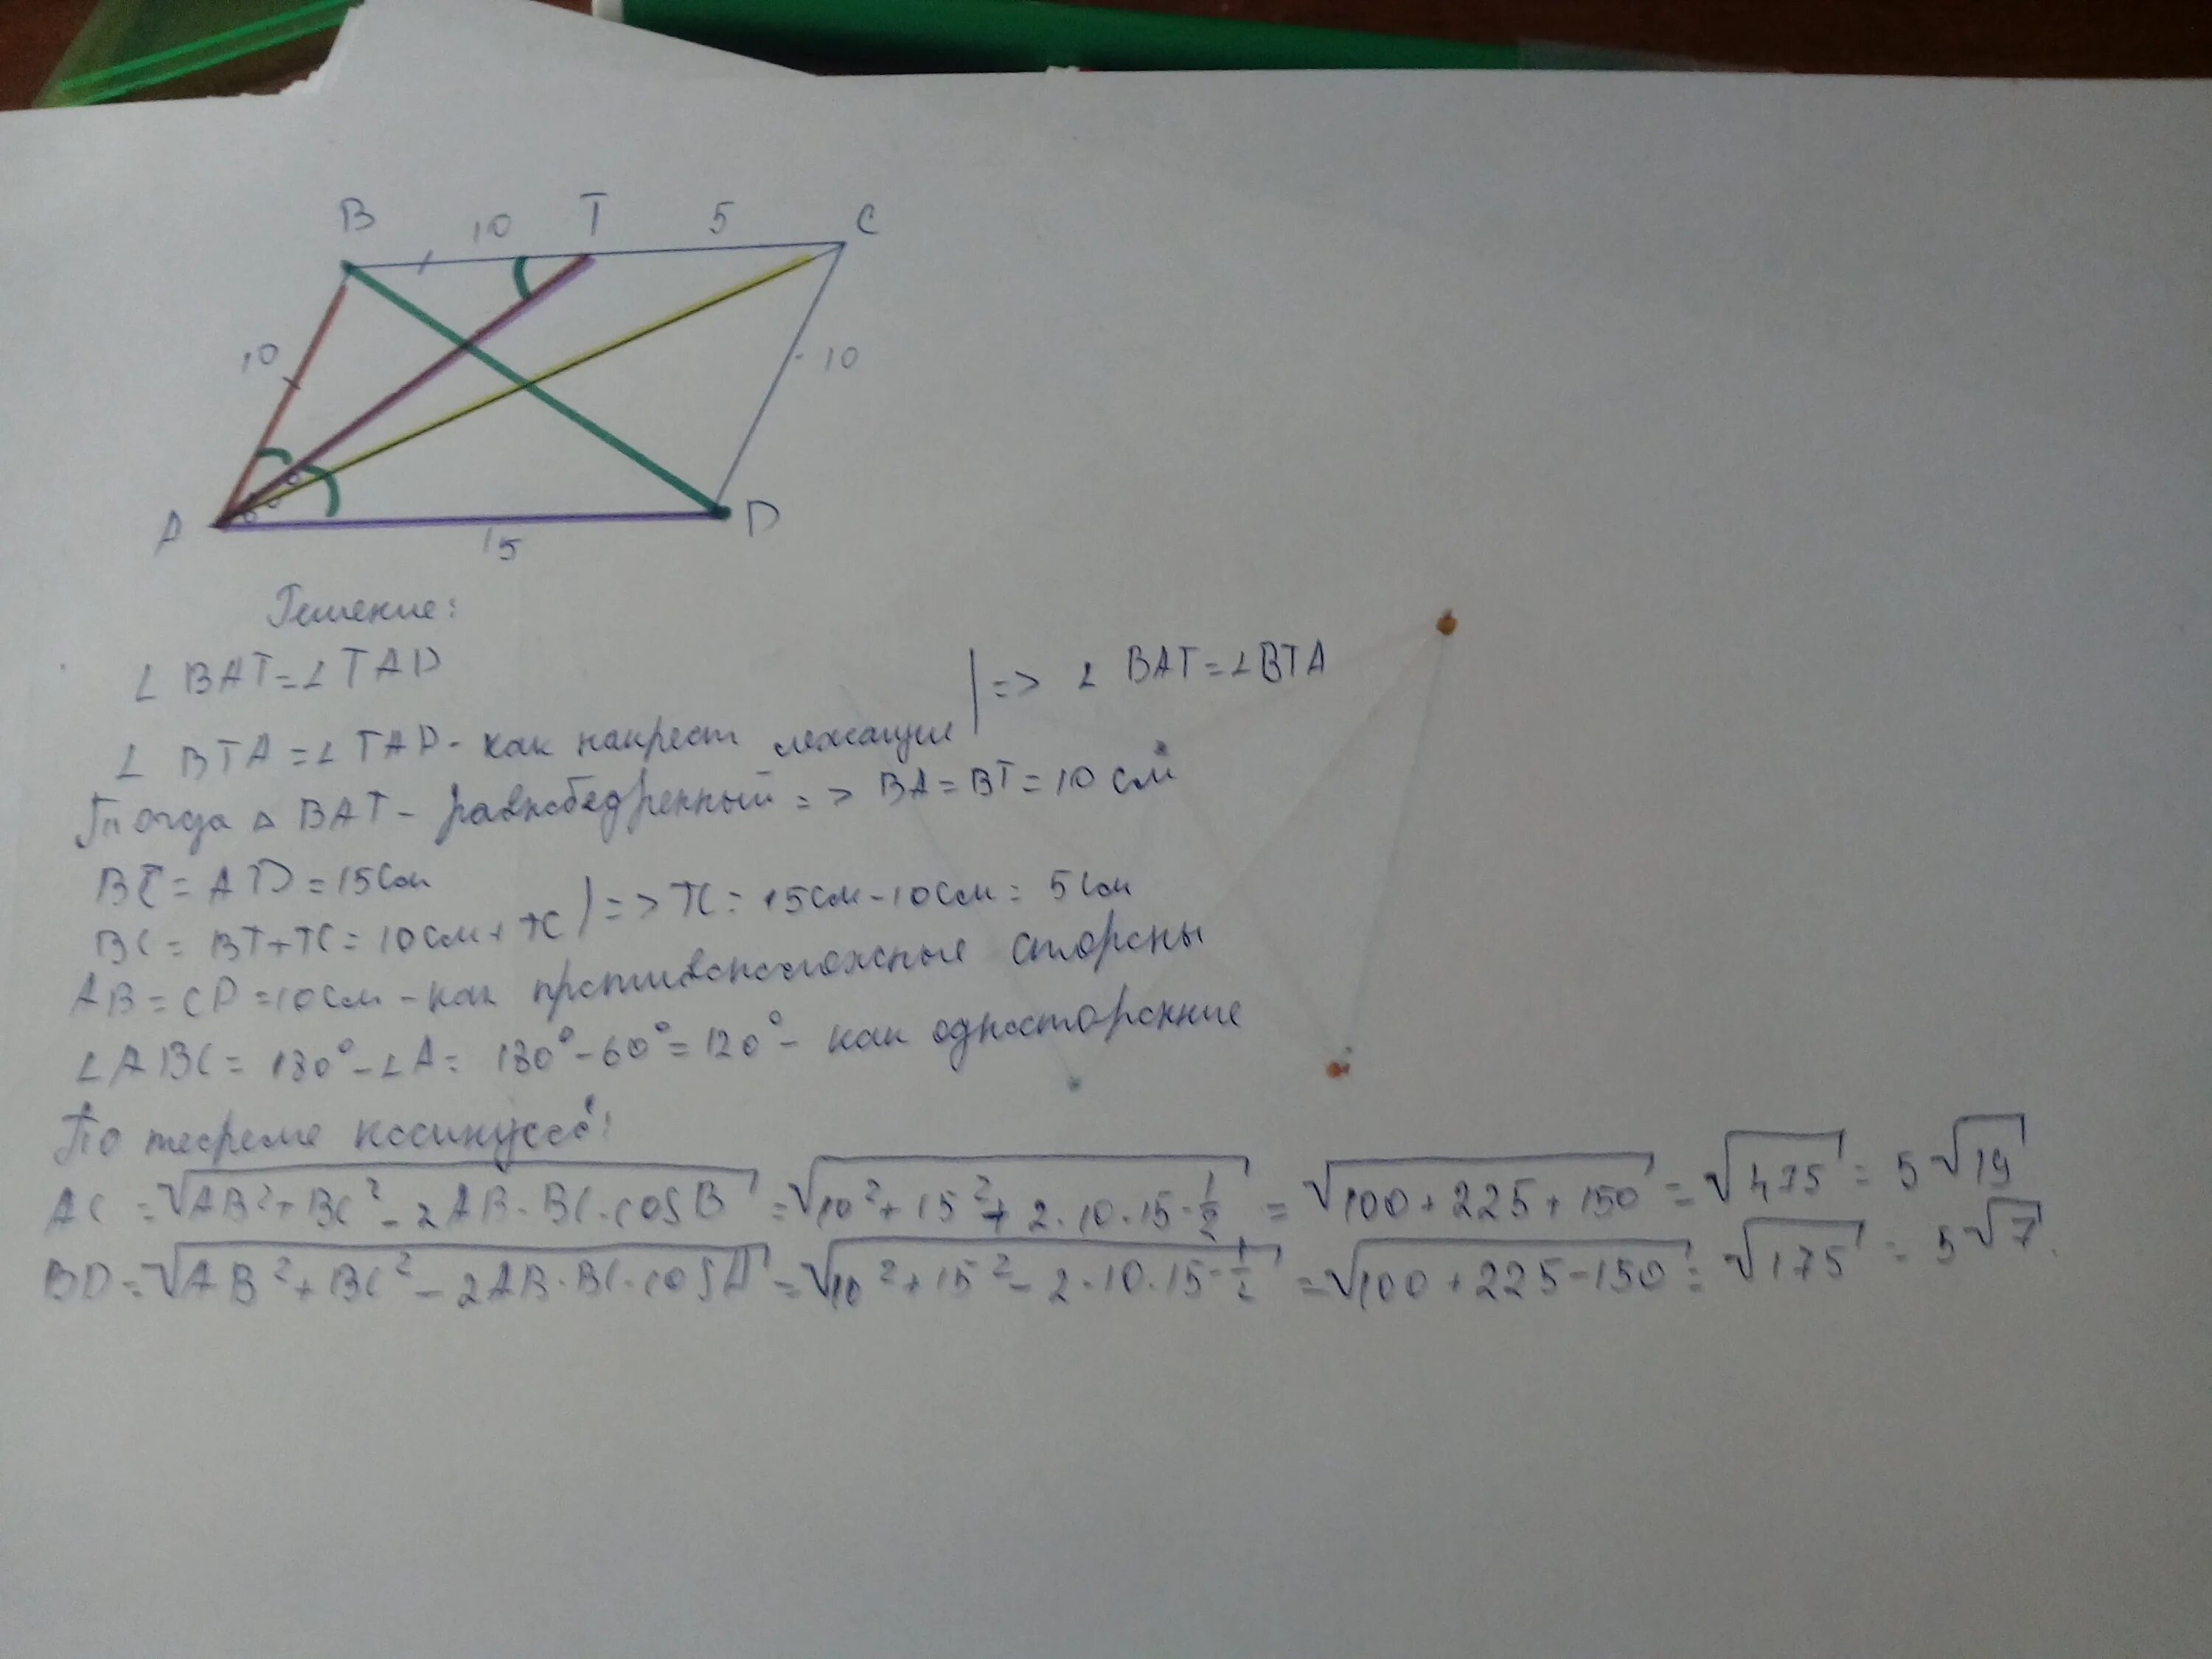 B 10 T 5 C
10 10
A 15 D
Решение:
∠ BAT = ∠ TAD
∠ BTA = ∠ TAD - как накрест лежащие | => ∠ BAT = ∠ BTA
Тогда △ BAT - равнобедренный => BA = BT = 10 см
BC = AD = 15 см
BC = BT + TC = 10 см + TC ) => TC = 15 см - 10 см = 5 см
AB = CD = 10 см - как противоположные стороны
∠ ABC = 180° - ∠A = 180° - 60° = 120° - как односторонние
По теореме косинусов:
AC = √(AB² + BC² - 2AB · BC · cos B) = √(10² + 15² + 2 · 10 · 15 · 1/2) = √(100 + 225 + 150) = √475 = 5√19
BD = √(AB² + BC² - 2AB · BC · cos A) = √(10² + 15² - 2 · 10 · 15 · 1/2) = √(100 + 225 - 150) = √175 = 5√7.